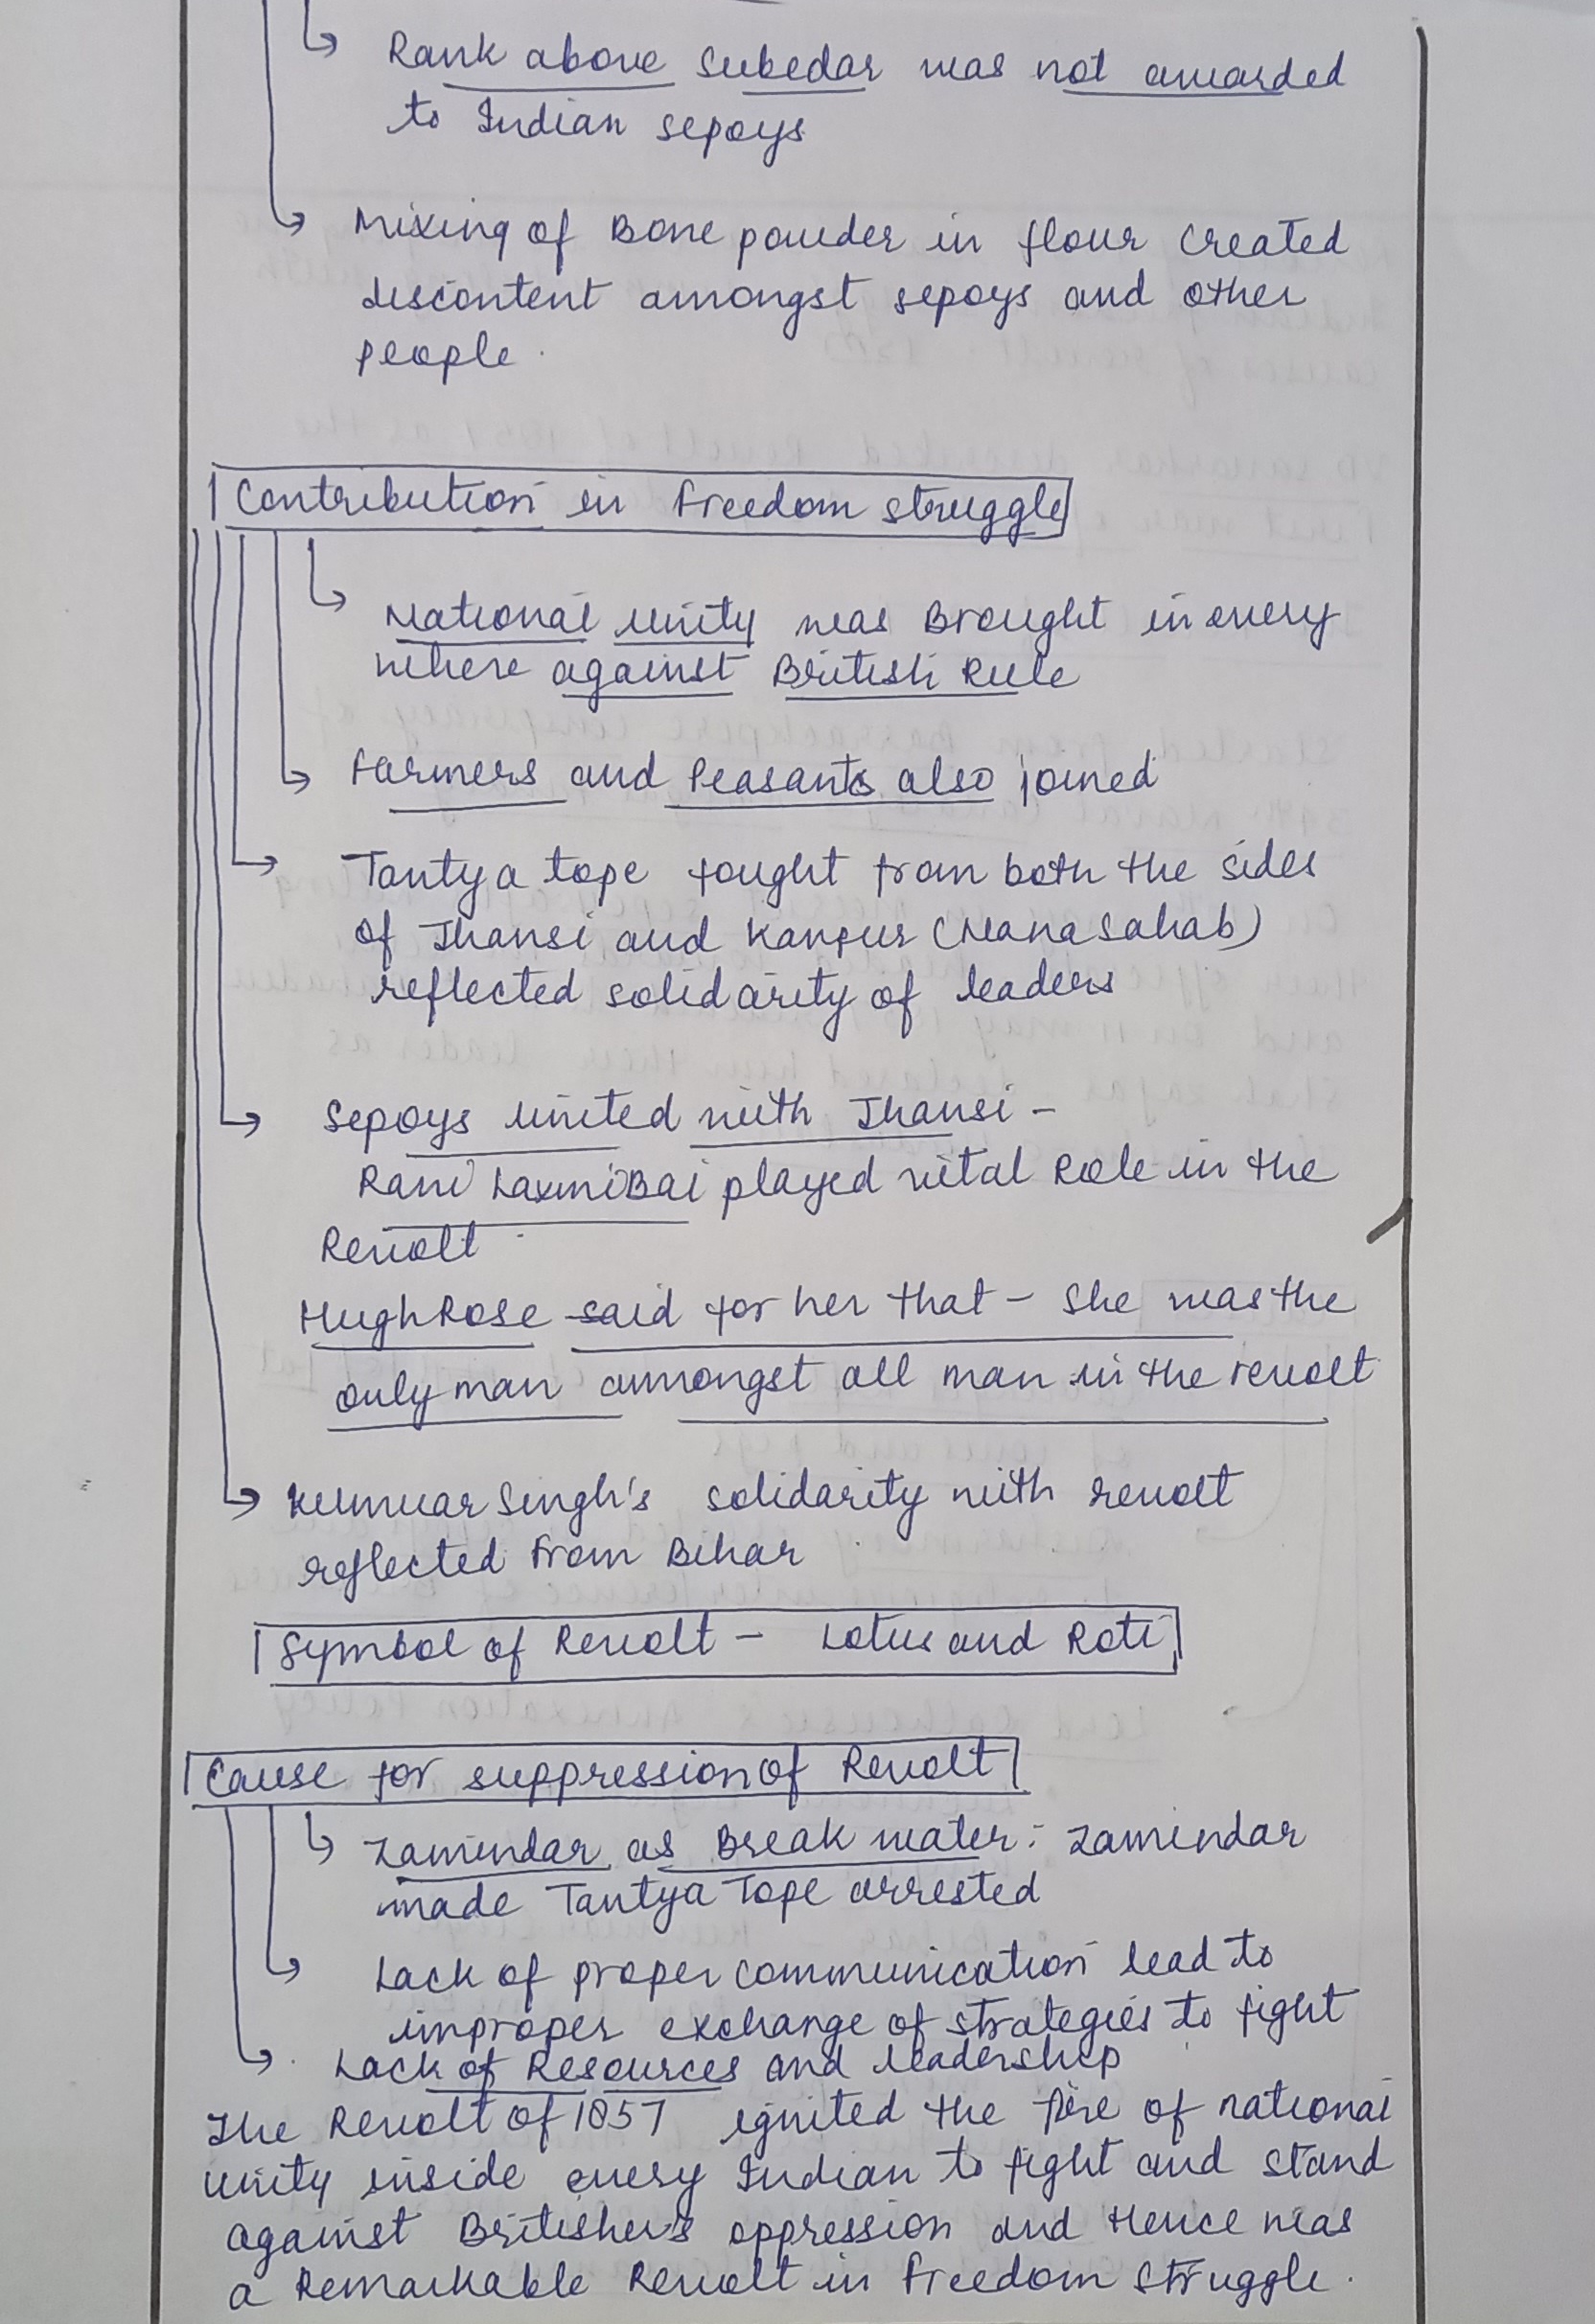 Rank above Subedar was not awarded
to Indian sepoys
Mixing of Bone powder in flour created
discontent amongst sepoys and other
people.
Contribution in freedom struggle
National unity was Brought in every
where against British Rule
Farmers and Peasants also joined
Tantya tope fought from both the sides
of Jhansi and Kanpur (Nana Sahab)
reflected solidarity of leaders
Sepoys united with Jhansi -
Rani LaxmiBai played vital Role in the
Revolt.
Hugh Rose said for her that - She was the
only man amongst all man in the revolt
Kunwar Singh's solidarity with revolt
reflected from Bihar
Symbol of Revolt - Lotus and Roti
Cause for suppression of Revolt
Zamindar as Break water: Zamindar
made Tantya Tope arrested
Lack of proper communication lead to
improper exchange of strategies to fight
Lack of Resources and leadership
The Revolt of 1857 ignited the fire of national
unity inside every Indian to fight and stand
against Britisher's oppression and Hence was
a Remarkable Revolt in freedom struggle.